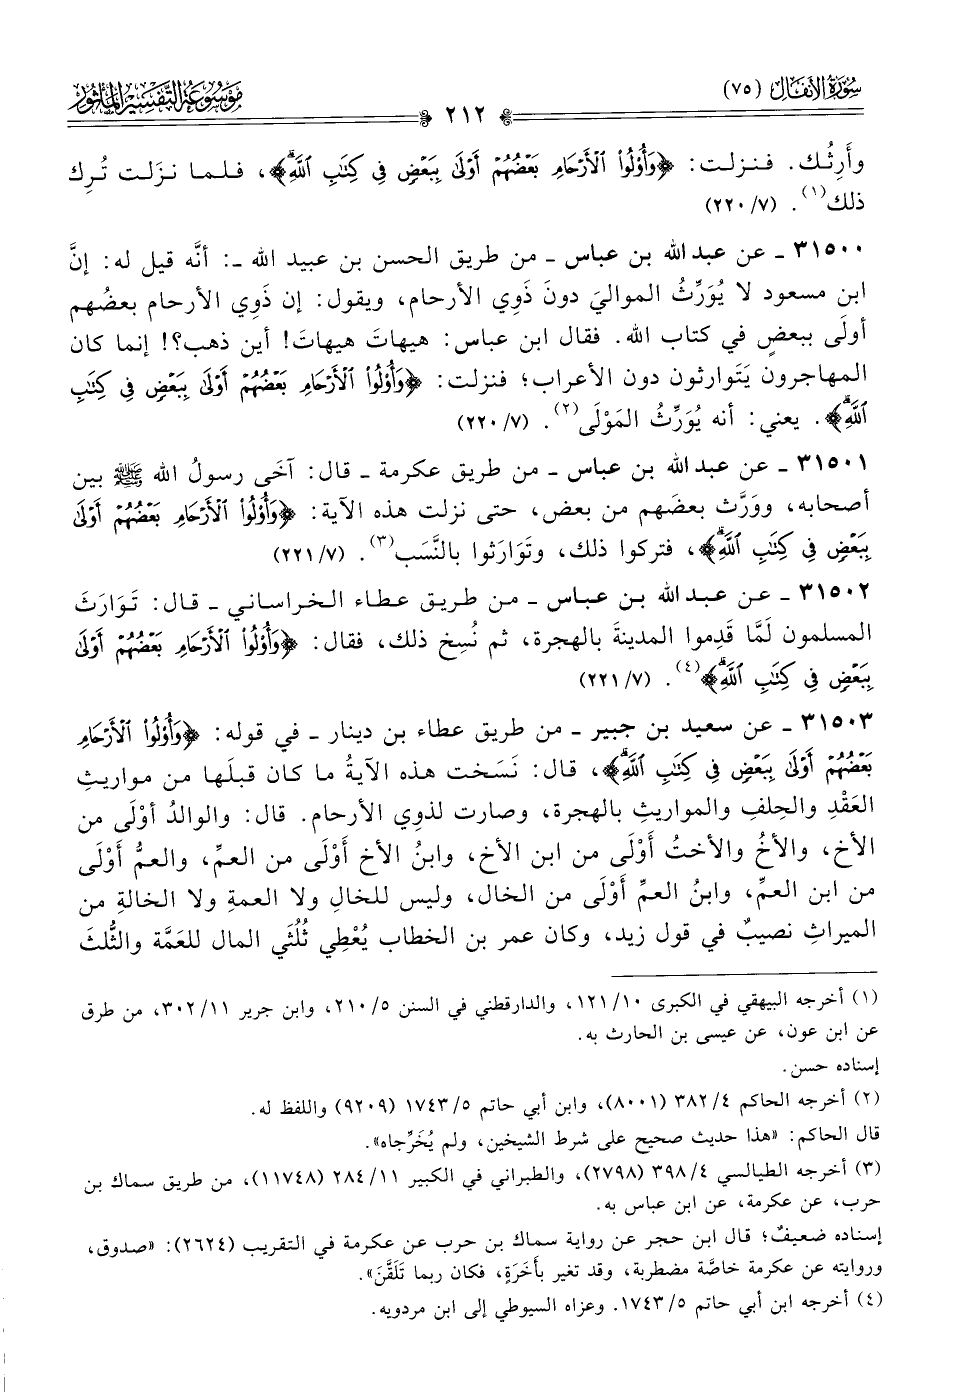 سورة الأنفال (٧٥)
موسوعة التفسير المأثور
٢١٢
وأَرِثُك. فنزلت: ﴿وَأُوْلُواْ ٱلْأَرْحَامِ بَعْضُهُمْ أَوْلَىٰ بِبَعْضٍ فِي كِتَٰبِ ٱللَّهِۗ﴾، فلما نزَلت تُرِك
ذلك(١). (٧/ ٢٢٠)
٣١٥٠٠ ـ عن عبد الله بن عباس ـ من طريق الحسن بن عبيد الله ـ: أنَّه قيل له: إنَّ
ابن مسعود لا يُوَرِّثُ المواليَ دونَ ذَوِي الأرحام، ويقول: إن ذَوِي الأرحام بعضُهم
أولَى ببعضٍ في كتاب الله. فقال ابن عباس: هيهاتَ هيهاتَ! أين ذهب؟! إنما كان
المهاجرون يَتَوارثون دون الأعراب؛ فنزلت: ﴿وَأُوْلُواْ ٱلْأَرْحَامِ بَعْضُهُمْ أَوْلَىٰ بِبَعْضٍ فِي كِتَٰبِ
ٱللَّهِۗ﴾. يعني: أنه يُوَرِّثُ المَوْلَى(٢). (٧/ ٢٢٠)
٣١٥٠١ ـ عن عبد الله بن عباس ـ من طريق عكرمة ـ قال: آخَى رسولُ الله ﷺ بين
أصحابه، ووَرَّث بعضَهم من بعض، حتى نزلت هذه الآية: ﴿وَأُوْلُواْ ٱلْأَرْحَامِ بَعْضُهُمْ أَوْلَىٰ
بِبَعْضٍ فِي كِتَٰبِ ٱللَّهِۗ﴾، فتركوا ذلك، وتَوَارَثوا بالنَّسَب(٣). (٧/ ٢٢١)
٣١٥٠٢ ـ عن عبد الله بن عباس ـ من طريق عطاء الخراساني ـ قال: تَوَارَثَ
المسلمون لَمَّا قَدِموا المدينةَ بالهجرة، ثم نُسِخ ذلك، فقال: ﴿وَأُوْلُواْ ٱلْأَرْحَامِ بَعْضُهُمْ أَوْلَىٰ
بِبَعْضٍ فِي كِتَٰبِ ٱللَّهِۗ﴾(٤). (٧/ ٢٢١)
٣١٥٠٣ ـ عن سعيد بن جبير ـ من طريق عطاء بن دينار ـ في قوله: ﴿وَأُوْلُواْ ٱلْأَرْحَامِ
بَعْضُهُمْ أَوْلَىٰ بِبَعْضٍ فِي كِتَٰبِ ٱللَّهِۗ﴾، قال: نَسَخت هذه الآيةُ ما كان قبلَها من مواريثِ
العَقْدِ والحِلفِ والمواريثِ بالهجرة، وصارت لذوِي الأرحام. قال: والوالدُ أوْلَى من
الأخ، والأخُ والأختُ أَوْلَى من ابن الأخ، وابنُ الأخ أَوْلَى من العمِّ، والعمُّ أَوْلَى
من ابن العمِّ، وابنُ العمِّ أَوْلَى من الخال، وليس للخالِ ولا العمةِ ولا الخالةِ من
الميراثِ نصيبٌ في قول زيد، وكان عمر بن الخطاب يُعْطِي ثُلُثَي المال للعَمَّة والثُّلثَ
(١) أخرجه البيهقي في الكبرى ١٠/ ١٢١، والدارقطني في السنن ٥/ ٢١٠، وابن جرير ١١/ ٣٠٢، من طرق
عن ابن عون، عن عيسى بن الحارث به.
إسناده حسن.
(٢) أخرجه الحاكم ٤/ ٣٨٢ (٨٠٠١)، وابن أبي حاتم ٥/ ١٧٤٣ (٩٢٠٩) واللفظ له.
قال الحاكم: «هذا حديث صحيح على شرط الشيخين، ولم يُخَرِّجاه».
(٣) أخرجه الطيالسي ٤/ ٣٩٨ (٢٧٩٨)، والطبراني في الكبير ١١/ ٢٨٤ (١١٧٤٨)، من طريق سماك بن
حرب، عن عكرمة، عن ابن عباس به.
إسناده ضعيفٌ؛ قال ابن حجر عن رواية سماك بن حرب عن عكرمة في التقريب (٢٦٢٤): «صدوق،
وروايته عن عكرمة خاصَّة مضطربة، وقد تغير بأَخَرَةٍ، فكان ربما تَلَقَّنَ».
(٤) أخرجه ابن أبي حاتم ٥/ ١٧٤٣. وعزاه السيوطي إلى ابن مردويه.